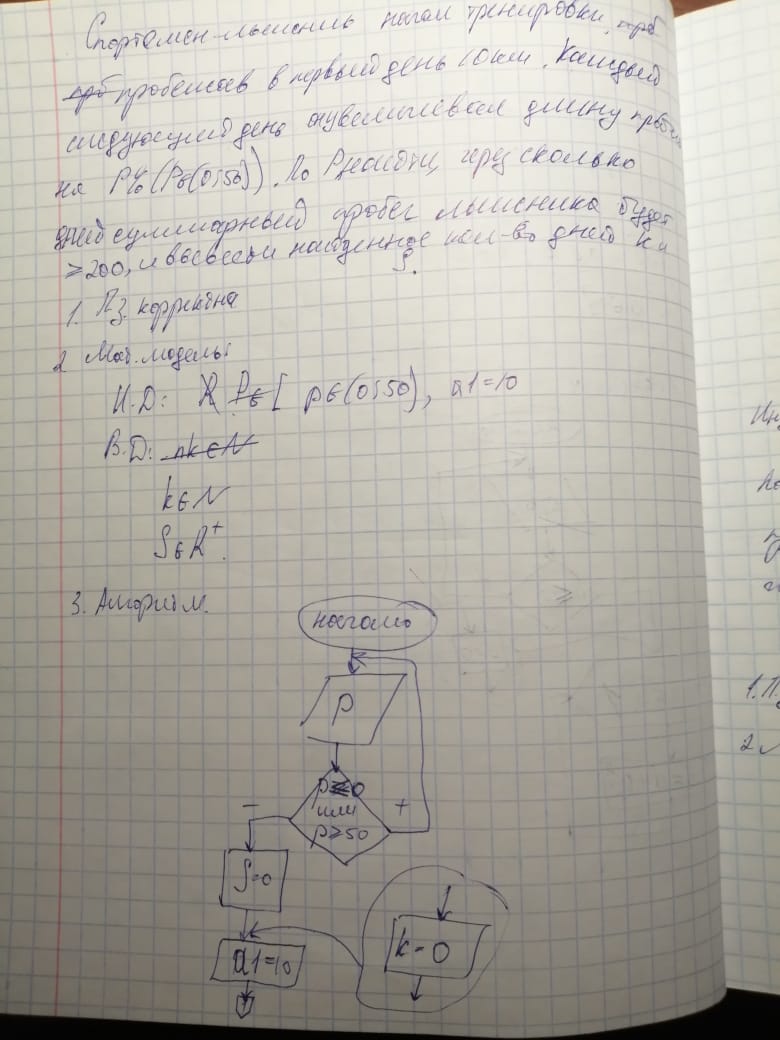 Спортсмен-лыжник начал тренировки,
пробежав в первый день 10 км. Каждый
следующий день он увеличивал длину пробега
на P% (P∈(0;50)). По P найти, через сколько
дней суммарный пробег лыжника будет
≥200, и вывести найденное кол-во дней k и
S.
1. П.З. корректна
2 Мат. модель:
И.Д: p∈(0;50), a1=10
В.Д: nk∈N
k∈N
S∈R⁺.
3. Алгоритм.
начало
P
p≤0
или
p≥50
+
−
S=0
k=0
a1=10
1. П.
2